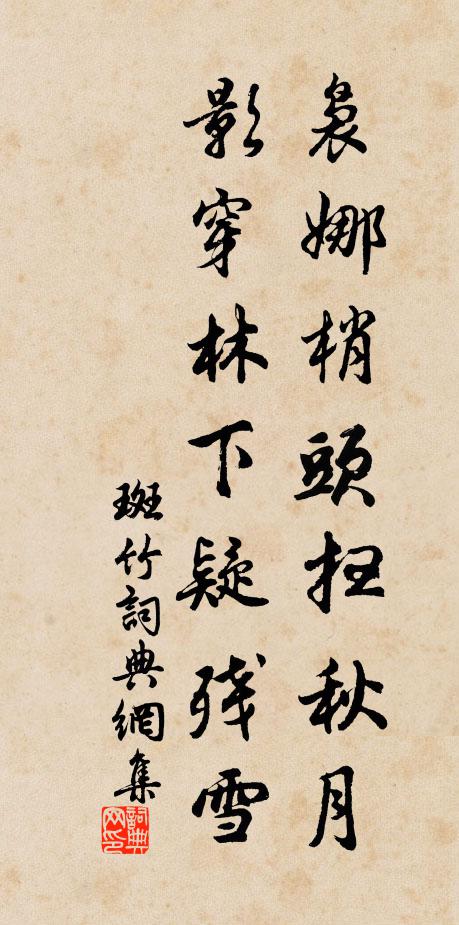 裊娜梢頭扫秋月
影穿林下疑残雪
斑竹詞典網集
詞典网印